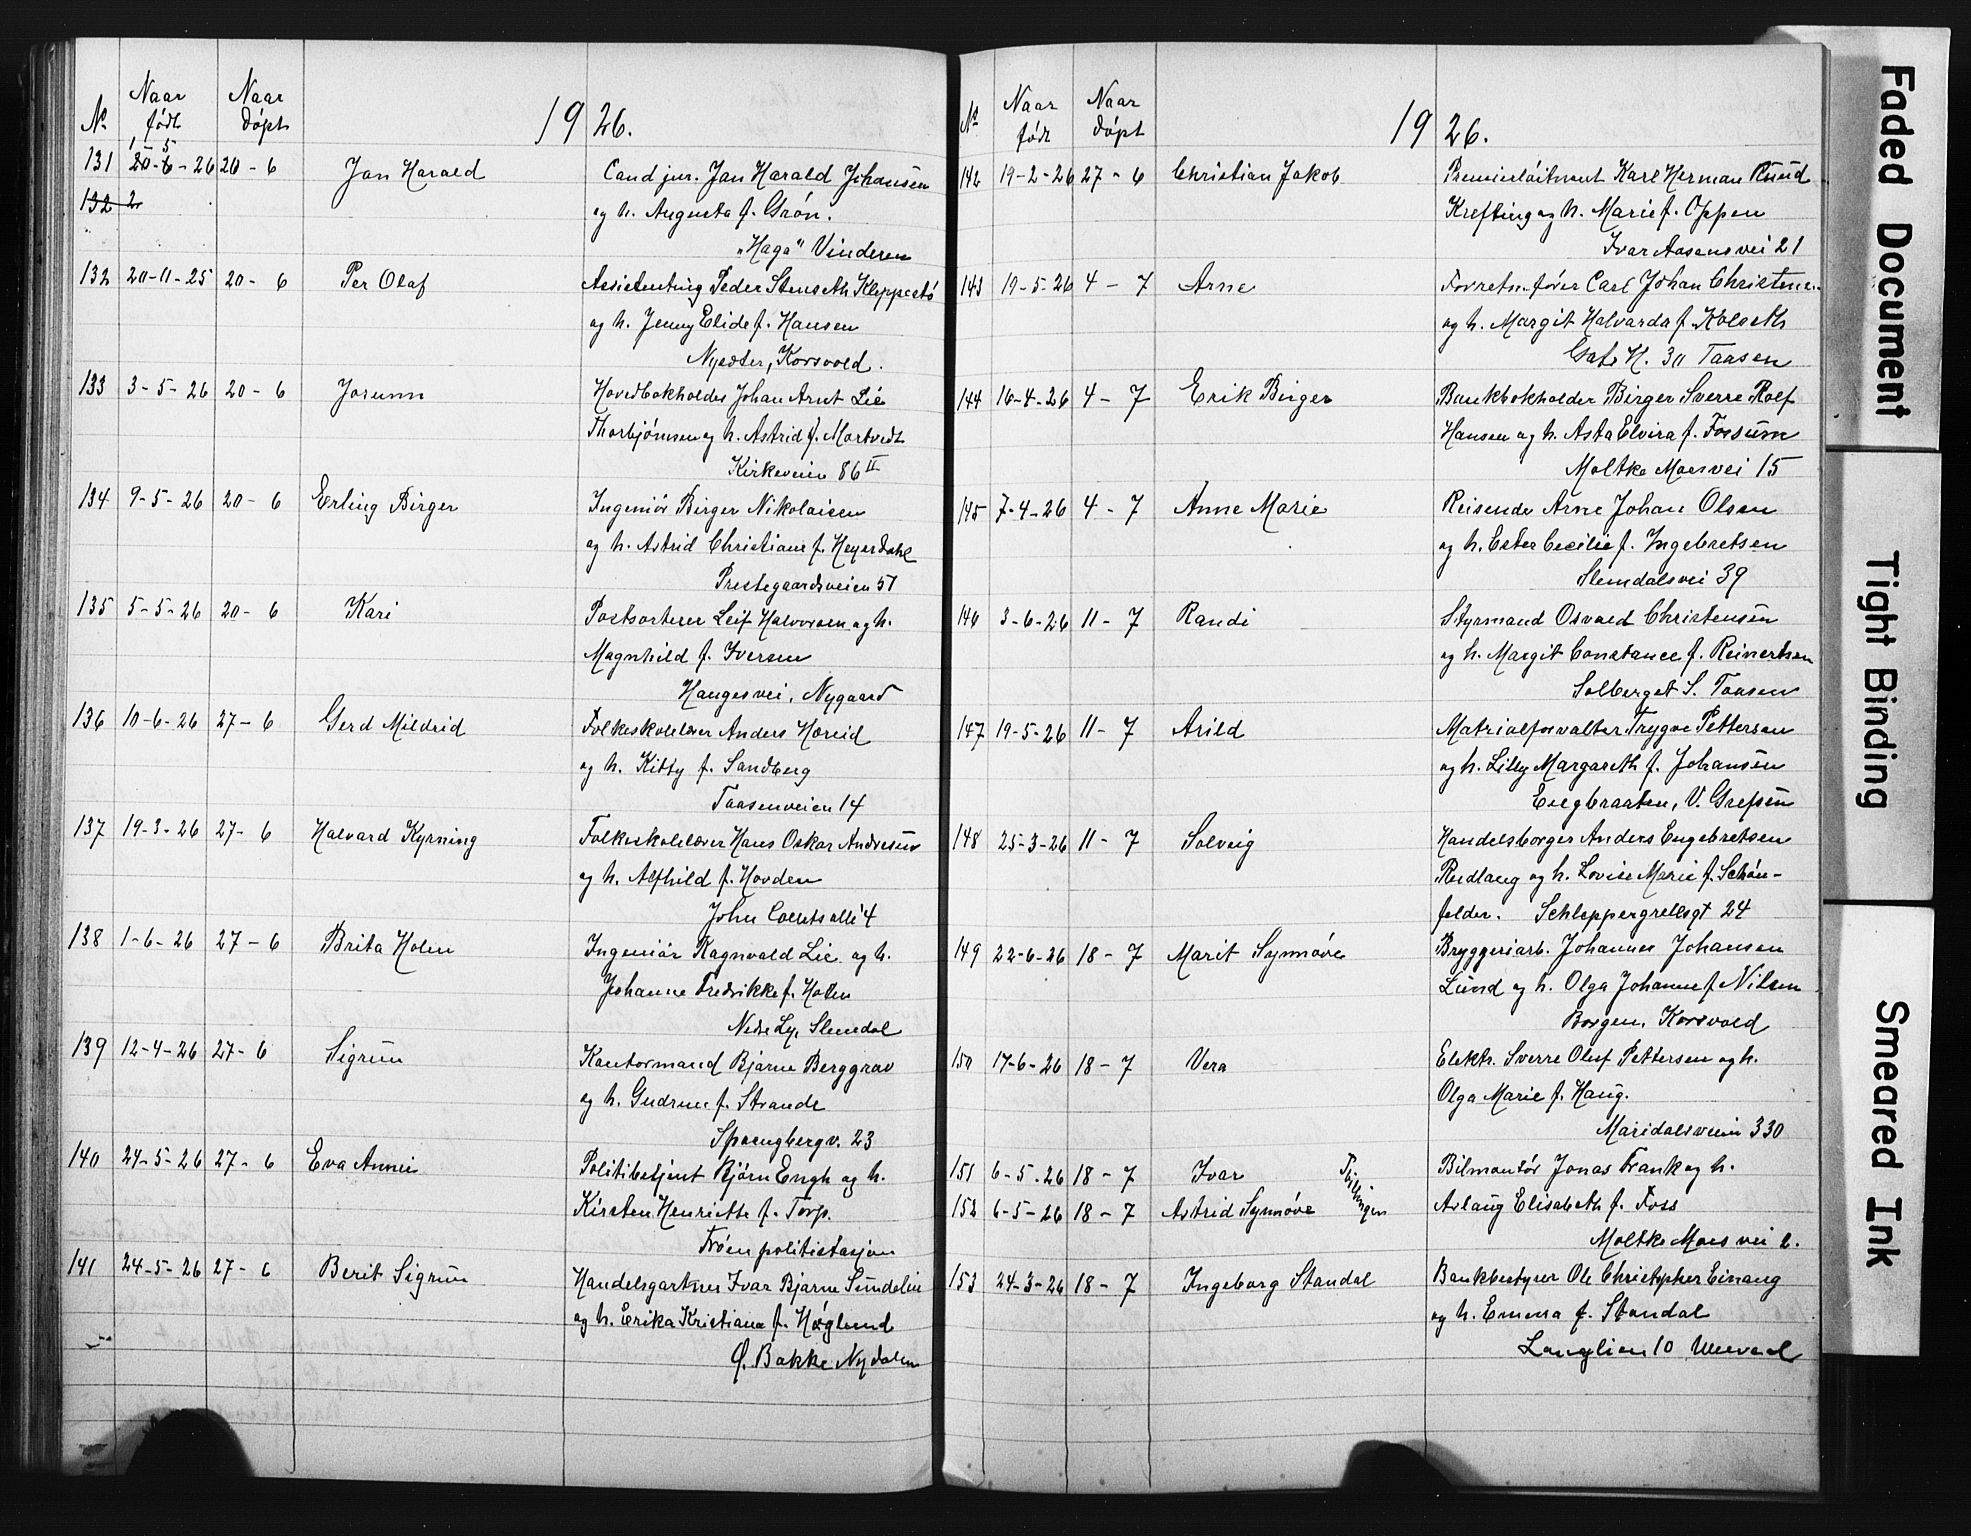 No Naar født Naar døpt 1926.
131 1-5 20-6-26 20-6 Jan Harald Cand jur. Jan Harald Johansen
132 2 og h. Augusta f. Grøn.
"Haga" Vinderen
132 20-11-25 20-6 Per Olaf Assistenting Peder Stenseth Kleppestø
og h. Jenny Elide f. Hansen
Nysæter, Korsvold.
133 3-5-26 20-6 Jorunn Hovedbokholder Johan Arnt Lie
Thorbjørnsen og h. Astrid f. Mortvedt
Kirkeveien 86 II
134 9-5-26 20-6 Erling Birger Ingeniør Birger Nikolaisen
og h. Astrid Christiane f. Heyerdahl
Prestegaardsveien 51
135 5-5-26 20-6 Kari Postsorterer Leif Halvorsen og h.
Magnhild f. Iversen
Haugesvei, Nygaard
136 10-6-26 27-6 Gerd Mildrid Folkeskolelærer Anders Hareid
og h. Kitty f. Sandberg
Taasenveien 14
137 19-3-26 27-6 Halvard Kyrning Folkeskolelærer Hans Oskar Andresen
og h. Alfhild f. Hovden
John Colletsalle 4
138 1-6-26 27-6 Brita Holm Ingeniør Ragnvald Lie og h.
Johanne Fredrikke f. Holm
Nedre Ly, Slemdal
139 12-4-26 27-6 Sigrun Kontormand Bjarne Berggrav
og h. Gudrun f. Strande
Spaengbergv. 23
140 24-5-26 27-6 Eva Annie Politibetjent Bjørn Engh og h.
Kirsten Henriette f. Torp.
Frøen politistasjon
141 24-5-26 27-6 Berit Sigrun Handelsgartner Ivar Bjarne Sundelin
og h. Erika Kristiane f. Høglund
Ø. Bakke Nydalen
No Naar født Naar døpt 1926.
142 19-2-26 27-6 Christian Jakob Premierløitnant Karl Herman Knud
Krefting og h. Marie f. Oppen
Ivar Aasens vei 21
143 19-5-26 4-7 Arne Forretn.fører Carl Johan Christensen
og h. Margit Halvarda f. Kolseth
Gate H. 30 Taasen
144 16-4-26 4-7 Erik Birger Bankbokholder Birger Sverre Rolf
Hansen og h. Asta Elvira f. Fossum
Moltke Moes vei 15
145 7-4-26 4-7 Anne Marie Reisende Arne Johan Olsen
og h. Ester Cecilie f. Ingebretsen
Slemdalsvei 39
146 3-6-26 11-7 Randi Styrmand Osvald Christensen
og h. Margit Constance f. Reinertsen
Solberget S. Taasen
147 19-5-26 11-7 Arild Matrialforvalter Trygve Pettersen
og h. Lilly Margareth f. Johansen
Engbraaten, V. Grefsen
148 25-3-26 11-7 Solveig Handelsborger Anders Engebretsen
Rudlang og h. Lovise Marie f. Schøn-
felder. Schleppegrellsgt 24
149 22-6-26 18-7 Marit Synnøve Bryggeriarb. Johannes Johansen
Lund og h. Olga Johanne f. Nilsen
Borgen, Korsvold
150 17-6-26 18-7 Vera Elektr. Sverre Oluf Pettersen og h.
Olga Marie f. Haug.
Maridalsveien 330
151 6-5-26 18-7 Ivar Tvillinger Bilmontør Jonas Frank og h.
152 6-5-26 18-7 Astrid Synnøve Aslaug Elisabeth f. Foss
Moltke Moes vei 2.
153 24-3-26 18-7 Ingeborg Standal Bankbestyrer Ole Christopher Einang
og h. Emma f. Standal
Langlien 10 Ullevaal
Faded Document
Tight Binding
Smeared Ink